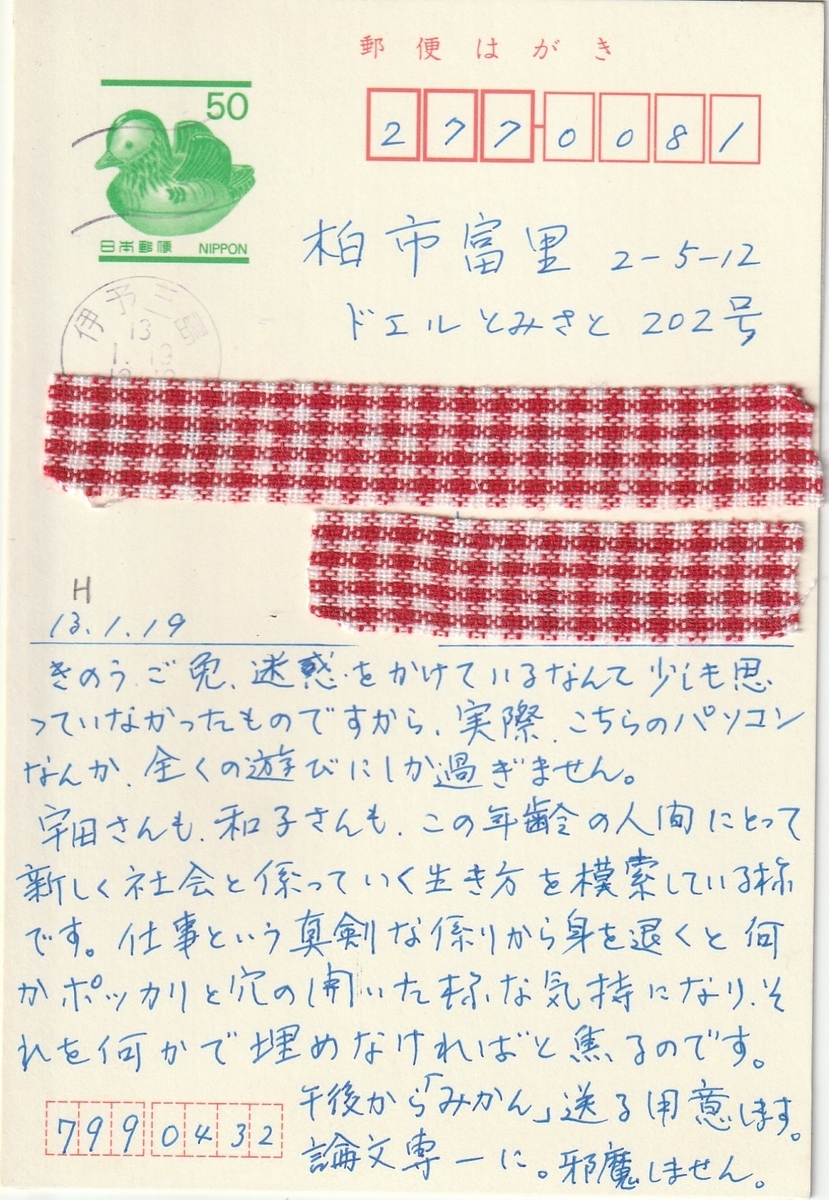 郵便はがき
50
2770081
日本郵便 NIPPON
柏市富里 2-5-12
ドエルとみさと 202号
伊予三島
13
1.19
H
13.1.19
きのうご免、迷惑をかけているなんて少しも思
っていなかったものですから、実際、こちらのパソコン
なんか、全くの遊びにしか過ぎません。
宇田さんも、和子さんも、この年齢の人間にとって
新しく社会と係っていく生き方を模索している様
です。仕事という真剣な係りから身を退くと何
かポッカリと穴の開いた様な気持になり、そ
れを何かで埋めなければと焦るのです。
午後から「みかん」送る用意します。
論文専一に。邪魔しません。
7990432